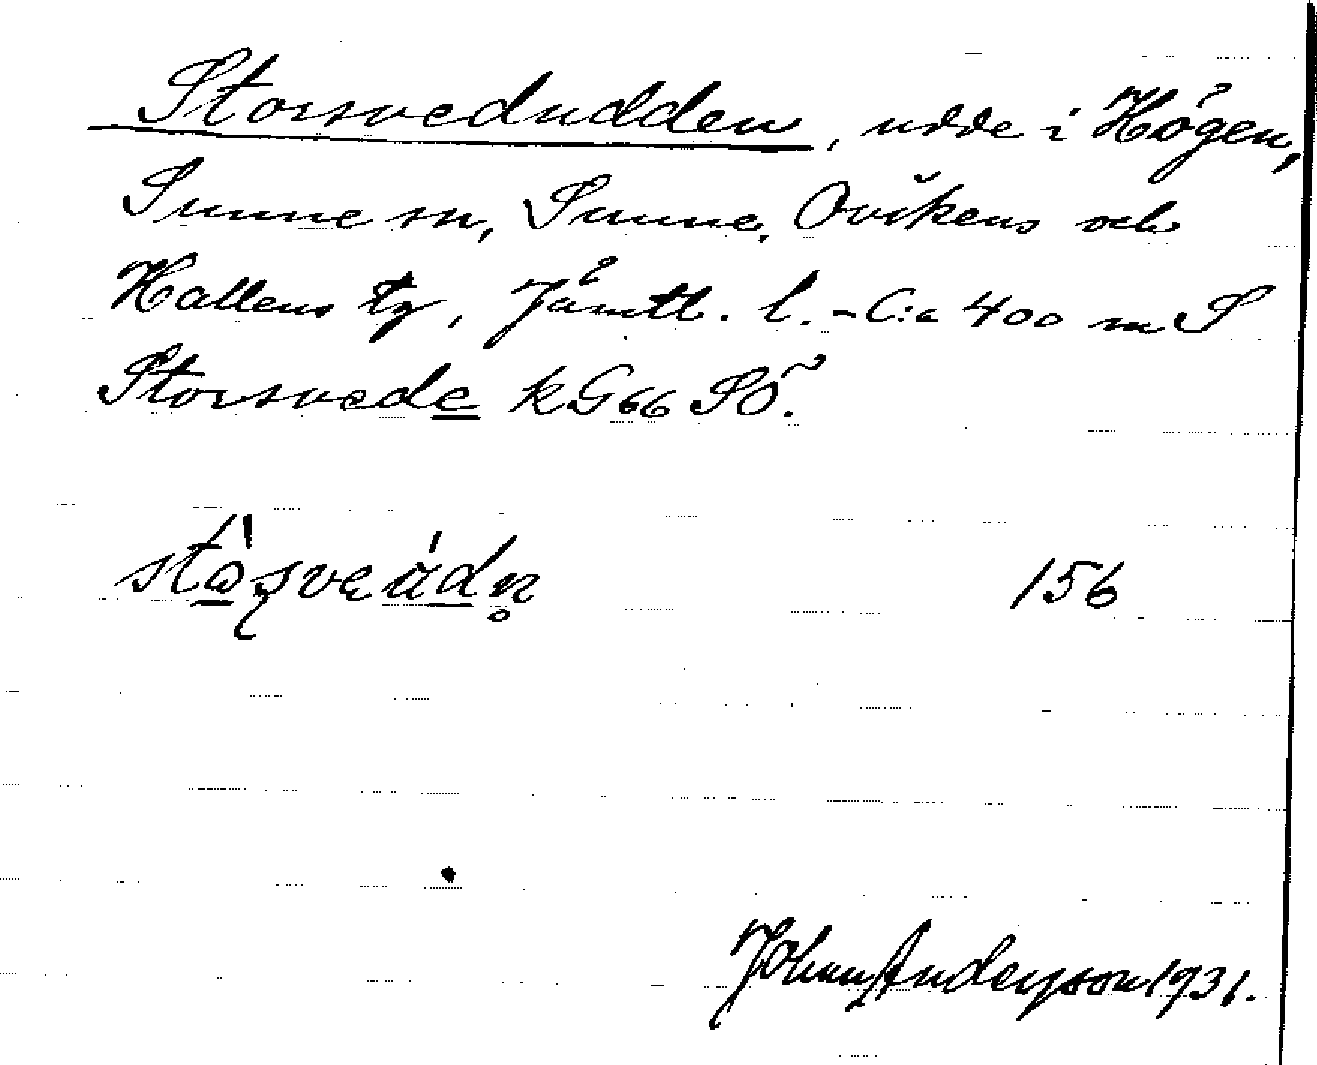 Storsvedudden, udde i Högen,
Sunne sn, Sunne, Ovikens och
Hallens tg, Jämtl. l. - C:a 400 m S
Storsvede kG66 SÖ.
156
Johan Andersson 1931.